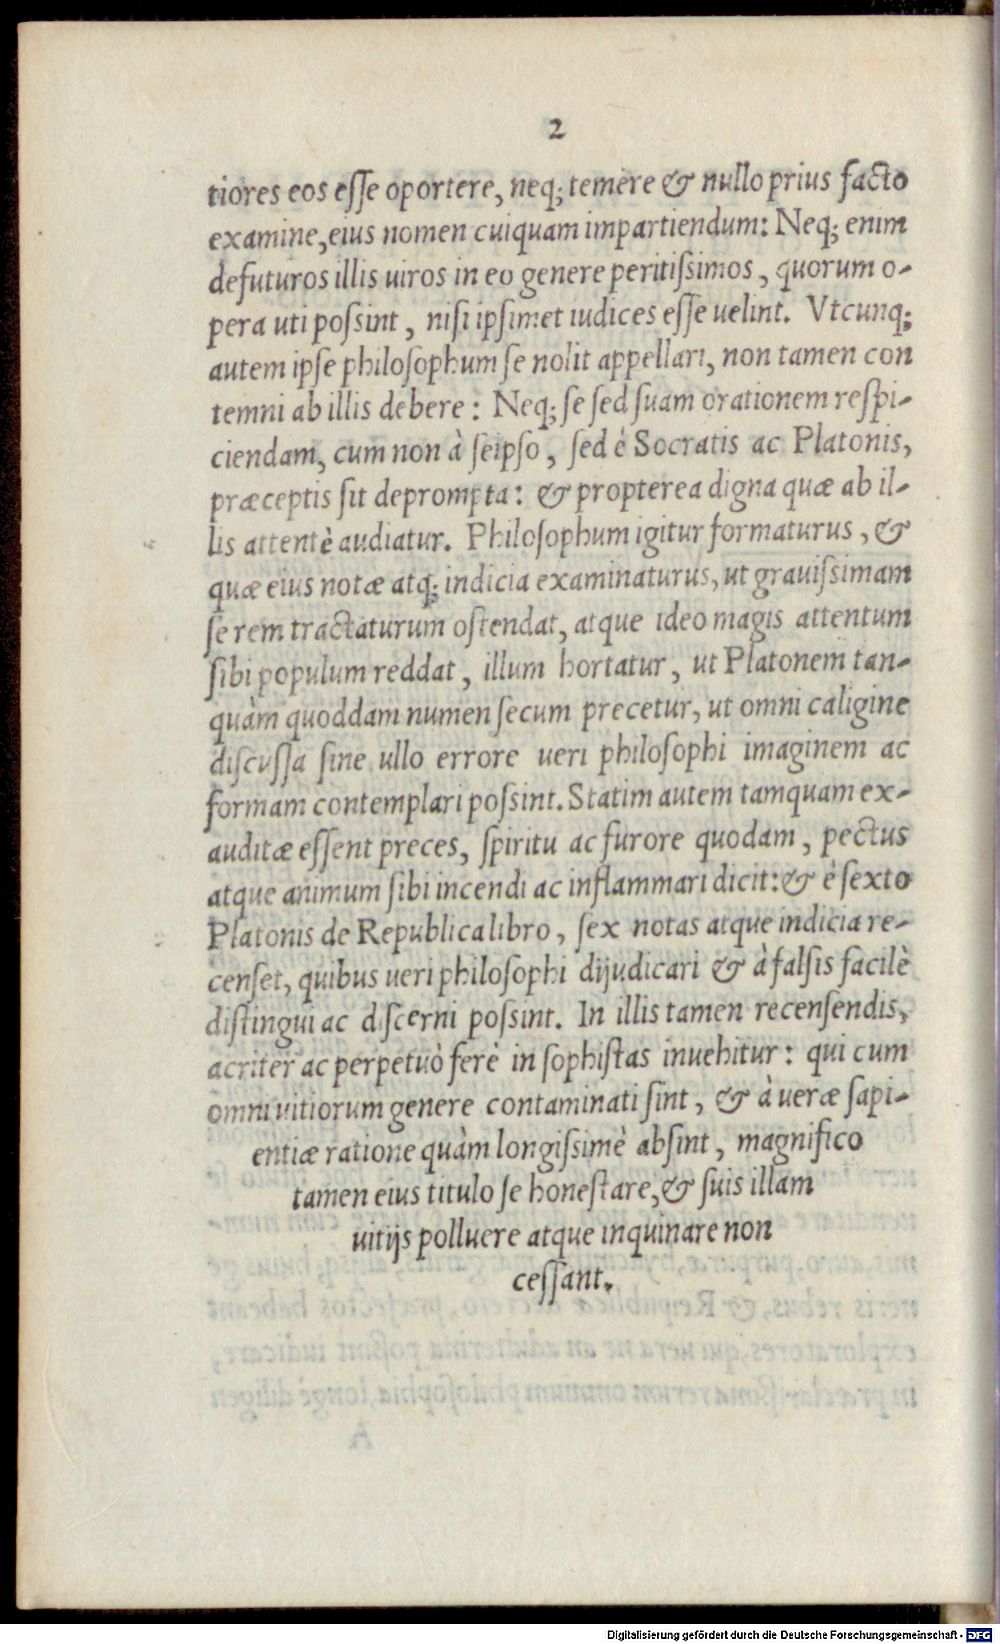 2
tiores eos eſſe oportere, neq; temere & nullo prius facto
examine, eius nomen cuiquam impartiendum: Neq; enim
defuturos illis uiros in eo genere peritiſsimos, quorum o-
pera uti poſsint, niſi ipſimet iudices eſſe uelint. Vtcunq;
autem ipſe philoſophum ſe nolit appellari, non tamen con
temni ab illis debere: Neq; ſe ſed ſuam orationem reſpi-
ciendam, cum non à ſeipſo, ſed è Socratis ac Platonis,
præceptis ſit deprompta: & propterea digna quæ ab il-
lis attentè audiatur. Philoſophum igitur formaturus, &
quæ eius notæ atq; indicia examinaturus, ut grauiſsimam
ſe rem tractaturum oſtendat, atque ideo magis attentum
ſibi populum reddat, illum hortatur, ut Platonem tan-
quàm quoddam numen ſecum precetur, ut omni caligine
diſcuſſa ſine ullo errore ueri philoſophi imaginem ac
formam contemplari poſsint. Statim autem tamquam ex-
auditæ eſſent preces, ſpiritu ac furore quodam, pectus
atque animum ſibi incendi ac inflammari dicit: & è ſexto
Platonis de Republica libro, ſex notas atque indicia re-
cenſet, quibus ueri philoſophi dijudicari & à falſis facilè
diſtingui ac diſcerni poſsint. In illis tamen recenſendis,
acriter ac perpetuò ferè in ſophiſtas inuehitur: qui cum
omni uitiorum genere contaminati ſint, & à ueræ ſapi-
entiæ ratione quàm longiſsimè abſint, magnifico
tamen eius titulo ſe honeſtare, & ſuis illam
uitijs polluere atque inquinare non
ceſſant.
Digitalisierung gefördert durch die Deutsche Forschungsgemeinschaft - DFG